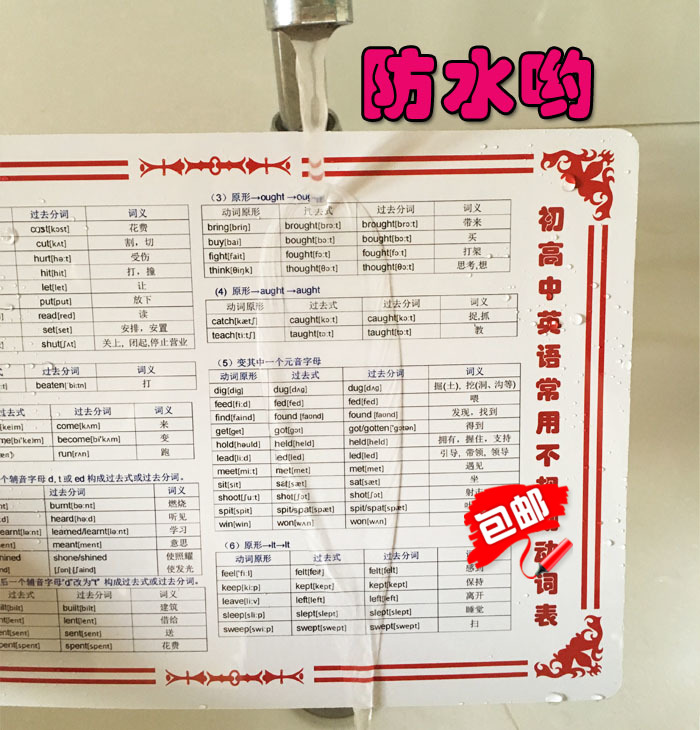 防水哟
过去分词 词义
cost[kɔst] 花费
cut[kʌt] 割，切
hurt[hə:t] 受伤
hit[hit] 打，撞
let[let] 让
put[put] 放下
read[red] 读
set[set] 安排，安置
shut[ʃʌt] 关上，闭起,停止营业
过去分词 词义
beaten['bi:tn] 打
过去式 过去分词 词义
come[kʌm] 来
become[bi'kʌm] 变
run[rʌn] 跑
辅音字母 d, t或 ed 构成过去式或过去分词。
过去分词 词义
burnt[bə:nt] 燃烧
heard[hə:d] 听见
learned/learnt[lə:nt] 学习
meant[ment] 意思
shone/shined 使照耀
[ʃɒn] [ʃaind] 使发光
后一个辅音字母"d"改为"t" 构成过去式或过去分词。
过去分词 词义
built[bilt] 建筑
lent[lent] 借给
sent[sent] 送
spent[spent] 花费
（3）原形→ought →oug
动词原形 过去式 过去分词 词义
bring[briŋ] brought[brɔ:t] brought[brɔ:t] 带来
buy[bai] bought[bɔ:t] bought[bɔ:t] 买
fight[fait] fought[fɔ:t] fought[fɔ:t] 打架
think[θiŋk] thought[θɔ:t] thought[θɔ:t] 思考,想
（4）原形→aught →aught
动词原形 过去式 过去分词 词义
catch[kætʃ] caught[kɔ:t] caught[kɔ:t] 捉,抓
teach[ti:tʃ] taught[tɔ:t] taught[tɔ:t] 教
（5）变其中一个元音字母
动词原形 过去式 过去分词 词义
dig[dig] dug[dʌg] dug[dʌg] 掘(土), 挖(洞、沟等)
feed[fi:d] fed[fed] fed[fed] 喂
find[faind] found [faʊnd] found [faʊnd] 发现，找到
get[get] got[gɔt] got/gotten['gɔtən] 得到
hold[həuld] held[held] held[held] 拥有，握住，支持
lead[li:d] led[led] led[led] 引导, 带领, 领导
meet[mi:t] met[met] met[met] 遇见
sit[sit] sat[sæt] sat[sæt] 坐
shoot[ʃu:t] shot[ʃɔt] shot[ʃɔt]
spit[spit] spit/spat[spæt] spit/spat[spæt]
win[win] won[wʌn] won[wʌn]
（6）原形→lt→lt
动词原形 过去式 过去分词
feel['fi:l] felt[felt] felt[felt] 感到
keep[ki:p] kept[kept] kept[kept] 保持
leave[li:v] left[left] left[left] 离开
sleep[sli:p] slept[slept] slept[slept] 睡觉
sweep[swi:p] swept[swept] swept[swept] 扫
初高中英语常用不
动词表
包邮